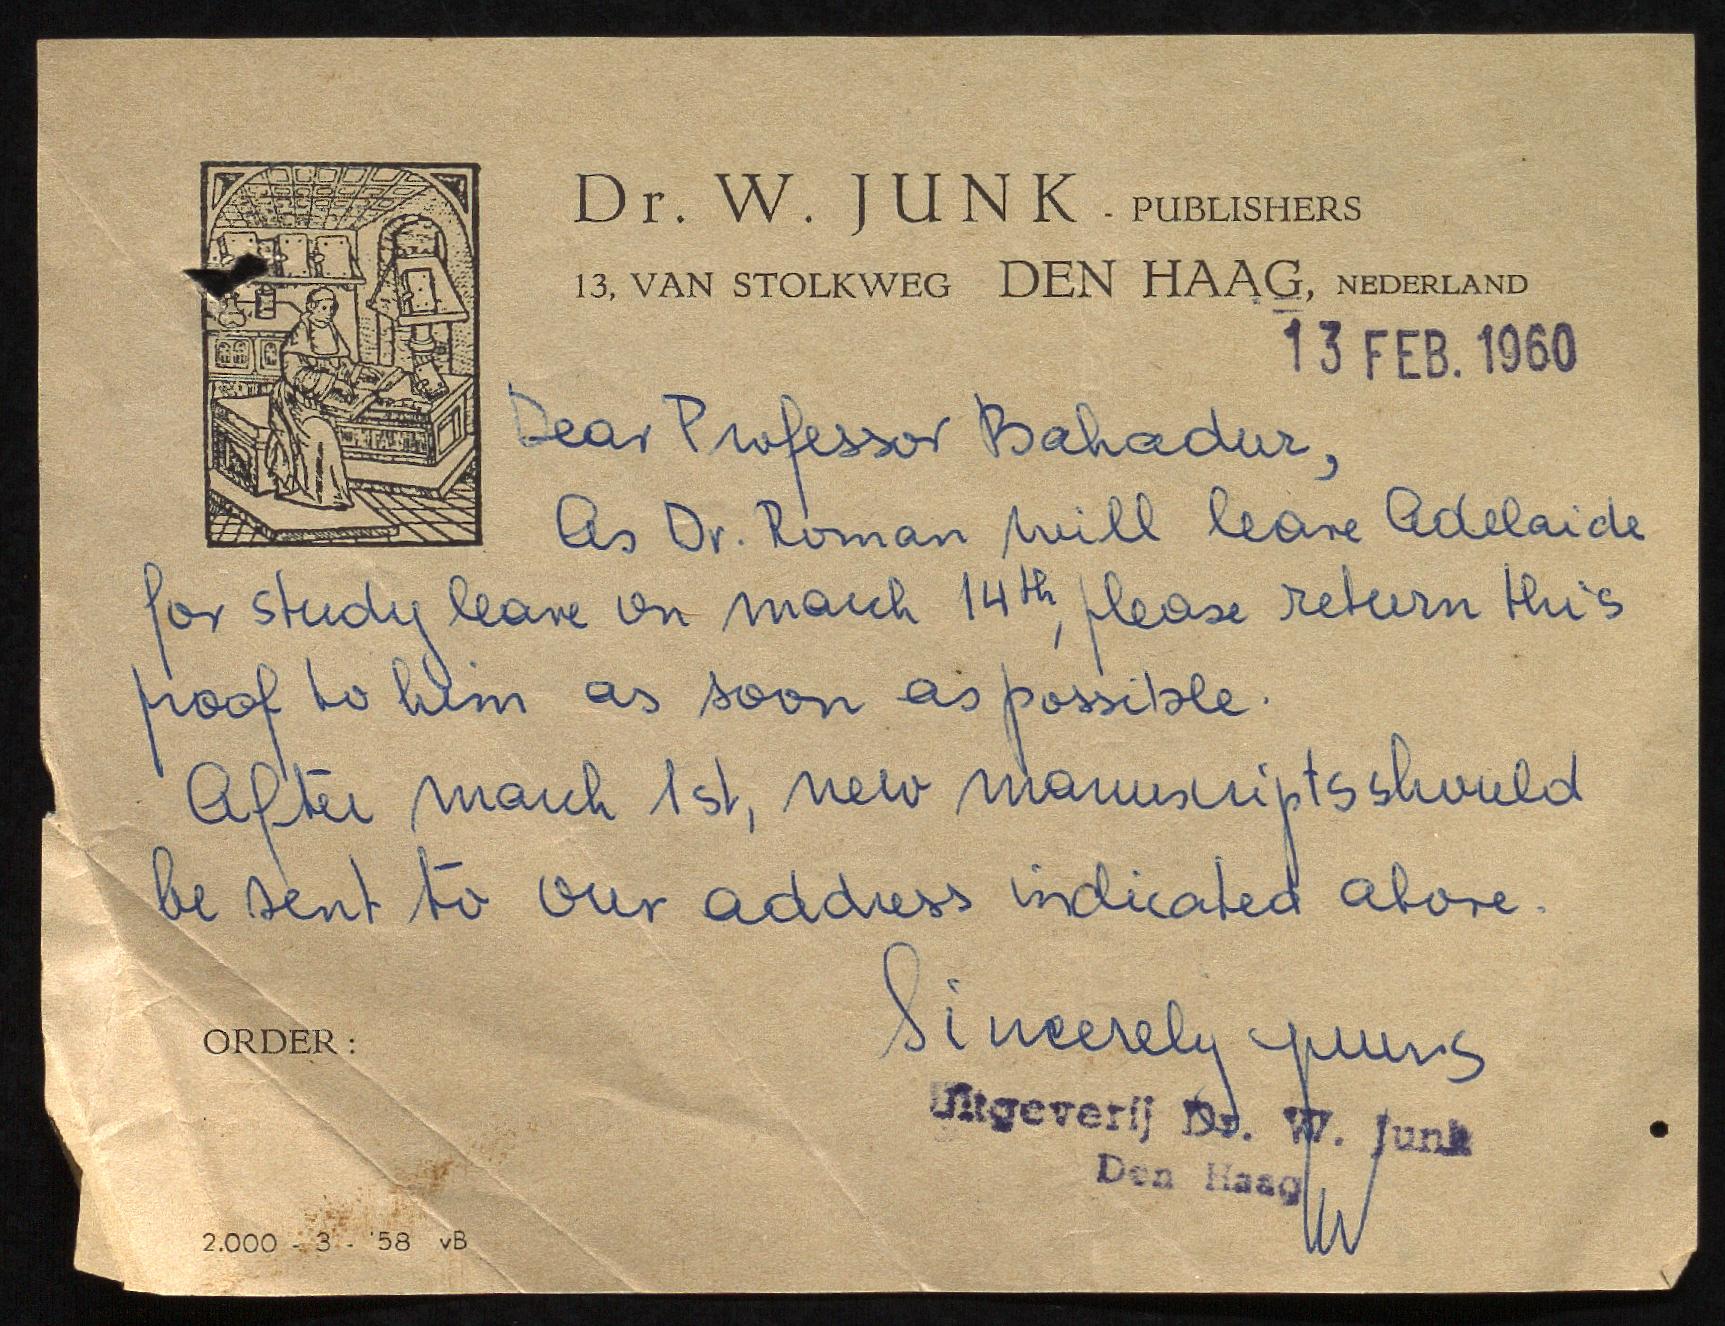 Dr. W. JUNK - PUBLISHERS
13, VAN STOLKWEG DEN HAAG, NEDERLAND
13 FEB. 1960
Dear Professor Bahadur,
As Dr. Roman will leave Adelaide
for study leave on march 14th, please return this
proof to him as soon as possible.
After march 1st, new manuscripts should
be sent to our address indicated above.
Sincerely yours
Uitgeverij Dr. W. Junk
Den Haag
ORDER:
2.000 - 3 - '58 vB